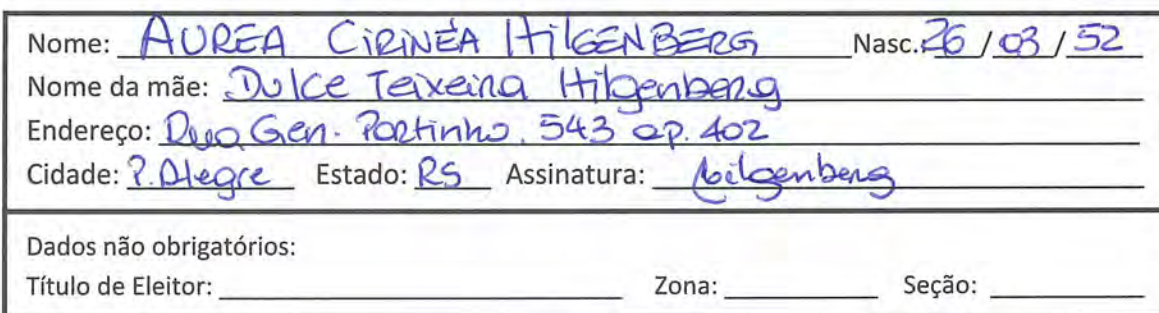 Nome: AUREA CIRINÉA HILGENBERG Nasc.: 26 / 03 / 52
Nome da mãe: Dulce Teixeira Hilgenberg
Endereço: Rua Gen. Portinho, 543 ap. 402
Cidade: P. Alegre Estado: RS Assinatura: Hilgenberg
Dados não obrigatórios:
Título de Eleitor: Zona: Seção: